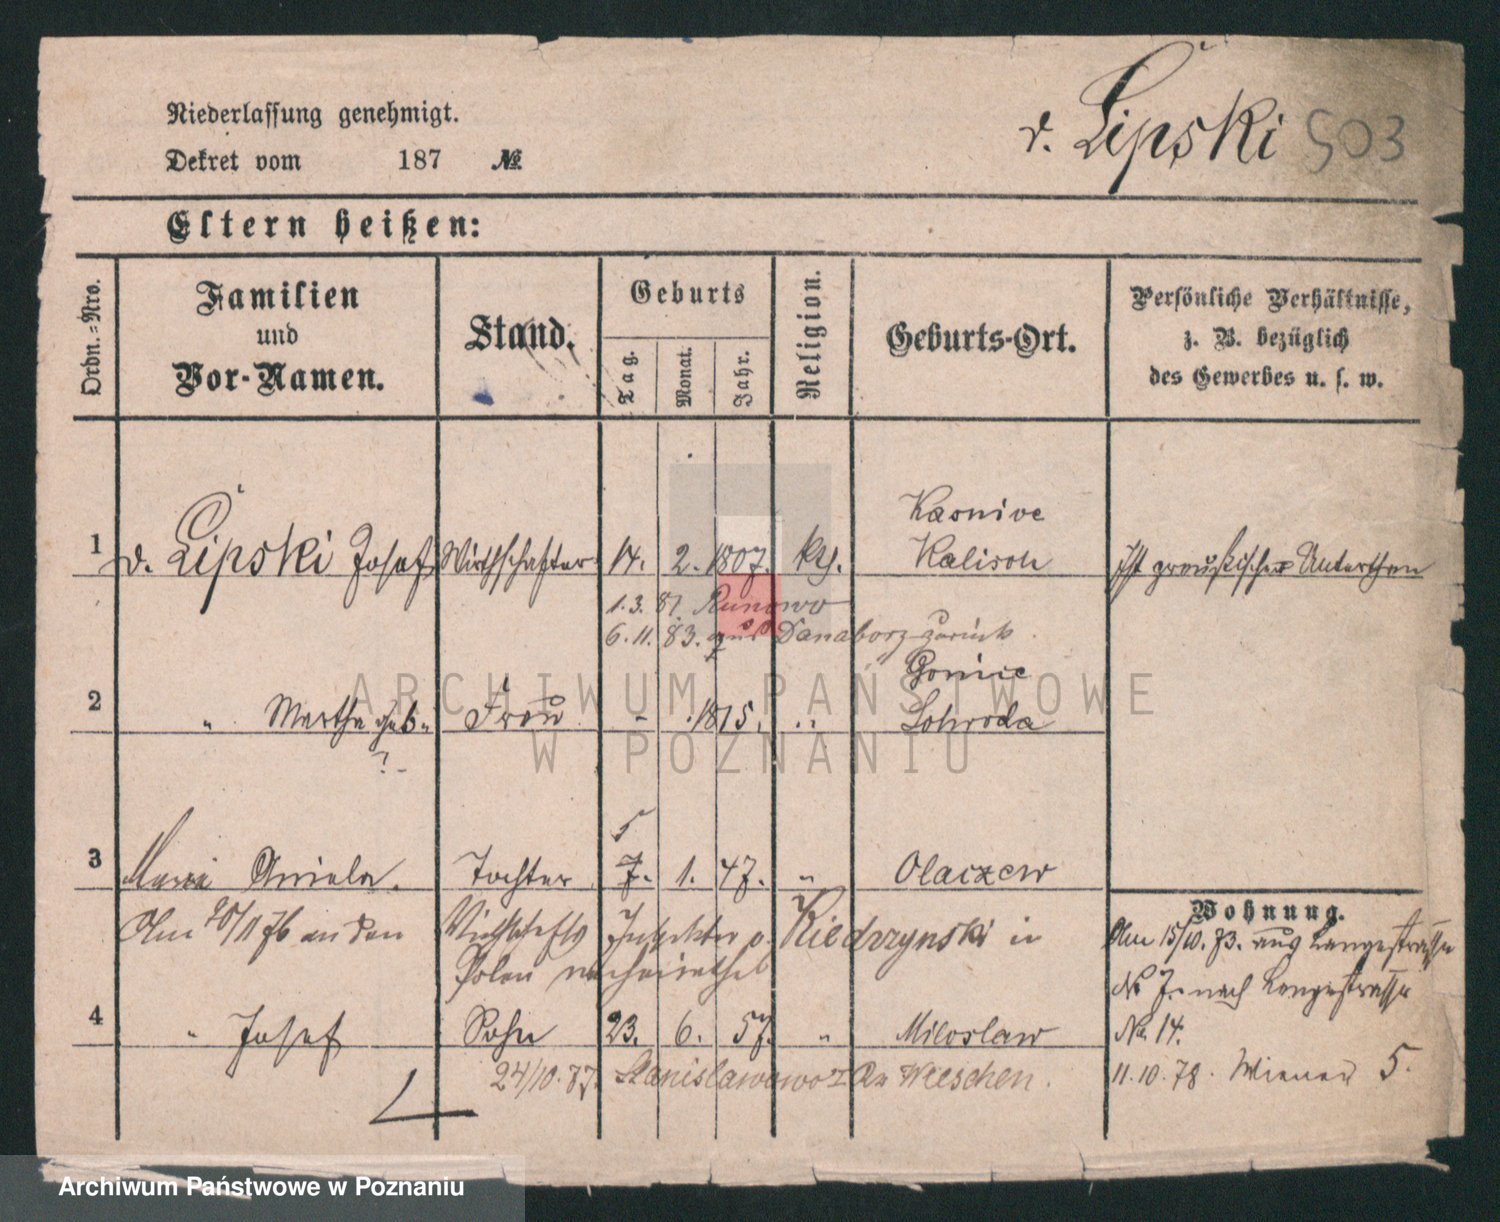 Niederlassung genehmigt.
Dekret vom 187 №
v. Lipski 503
Eltern heißen:
Ordn.-Nro.
Familien und Vor-Namen.
Stand.
Geburts
Tag. Monat. Jahr.
Religion.
Geburts-Ort.
Persönliche Verhältnisse, z. B. bezüglich des Gewerbes u. s. w.
Kalisch
1 v. Lipski Josef Wirthschafter 14. 2. 1807. kth. Ist preußischer Unterthan
1.3.81. Runowo
6.11.83. aus Danaborz zurück.
2 " Martha geb. Frau - 1815. "
?
5
3 Maria Aniela. Tochter 7. 1. 47. "
Wohnung.
Am 20/1 76 an den Wirthschafts Inspektor v. Kiedrzynski in
Polen verheirathet
Am 15/10. 73. aus Langestrasse
No 7. nach Langestrasse
No. 14.
4 " Josef Sohn 23. 6. 57. " Miloslaw
24/10. 87. Stanislawowo Kr Wreschen.
11.10.78. Wiener 5.
ARCHIWUM PAŃSTWOWE
W POZNANIU
Archiwum Państwowe w Poznaniu